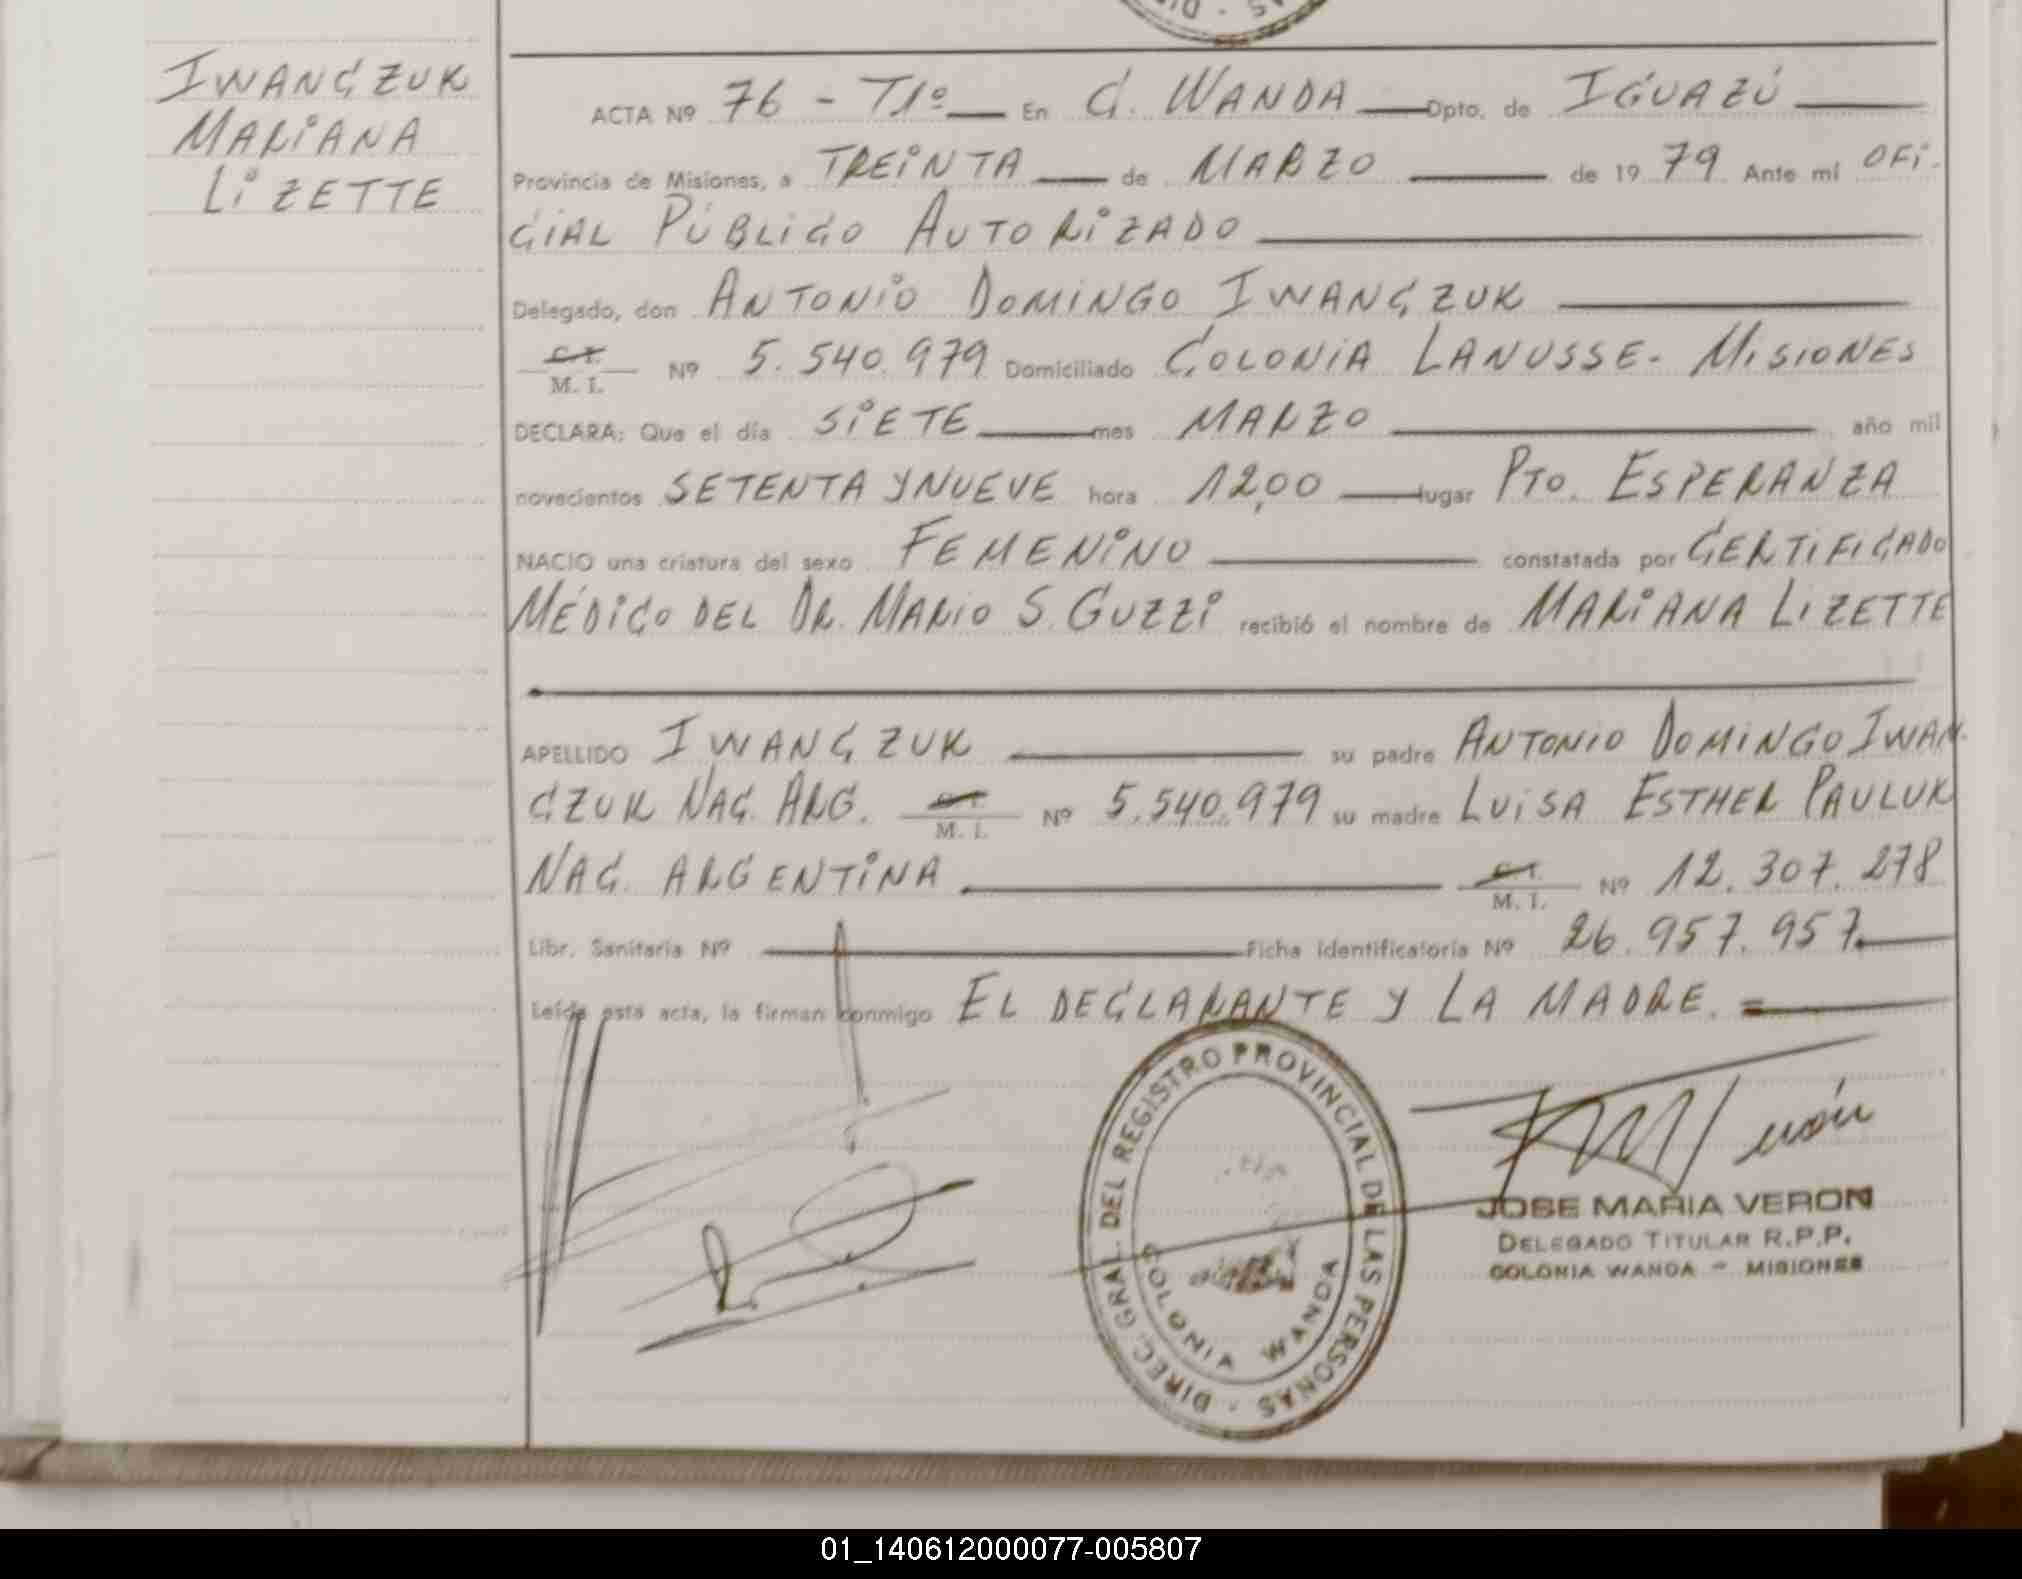 IWANCZUK
MARIANA
LIZETTE
ACTA Nº 76 - T1º En C. WANDA Dpto. de IGUAZÚ
Provincia de Misiones, a TREINTA de MARZO de 1979 Ante mí OFI-
CIAL PÚBLICO AUTORIZADO
Delegado, don ANTONIO DOMINGO IWANCZUK
C.I.
M. I. Nº 5.540.979 Domiciliado COLONIA LANUSSE- MISIONES
DECLARA: Que el día SIETE mes MARZO año mil
novecientos SETENTA Y NUEVE hora 12,00 lugar PTO. ESPERANZA
NACIO una criatura del sexo FEMENINO constatada por CERTIFICADO
MÉDICO DEL DR. MARIO S. GUZZI recibió el nombre de MARIANA LIZETTE
APELLIDO IWANCZUK su padre ANTONIO DOMINGO IWAN-
CZUK NAC. ARG. C.I. M. I. Nº 5.540.979 su madre LUISA ESTHER PAULUK
NAC. ARGENTINA C.I. M. I. Nº 12.307.278
Libr. Sanitaria Nº Ficha Identificatoria Nº 26.957.957
Leída esta acta, la firman conmigo EL DECLARANTE Y LA MADRE.=
DIREC. GRAL. DEL REGISTRO PROVINCIAL DE LAS PERSONAS
COLONIA WANDA
JOSE MARIA VERON
DELEGADO TITULAR R.P.P.
COLONIA WANDA - MISIONES
01_140612000077-005807